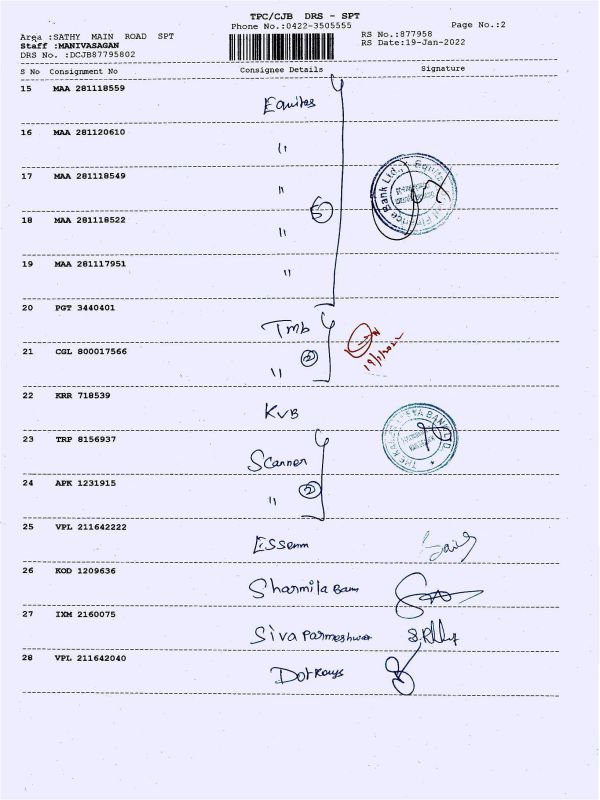 TPC/CJB DRS - SPT
Phone No.:0422-3505555 Page No.:2
Area :SATHY MAIN ROAD SPT RS No.:877958
Staff :MANIVASAGAN RS Date:19-Jan-2022
DRS No. :DCJB87795802
S No Consignment No Consignee Details Signature
15 MAA 281118559 Equitas
16 MAA 281120610 "
17 MAA 281118549 "
5
18 MAA 281118522 "
19 MAA 281117951 "
20 PGT 3440401 Tmb
21 CGL 800017566 " 2 19/1/2022
22 KRR 718539 KVB
23 TRP 8156937 Scanner
24 APK 1231915 " 2
25 VPL 211642222 Essenm
26 KOD 1209636 Sharmila Banu
27 IXM 2160075 Siva Parmeshwar
28 VPL 211642040